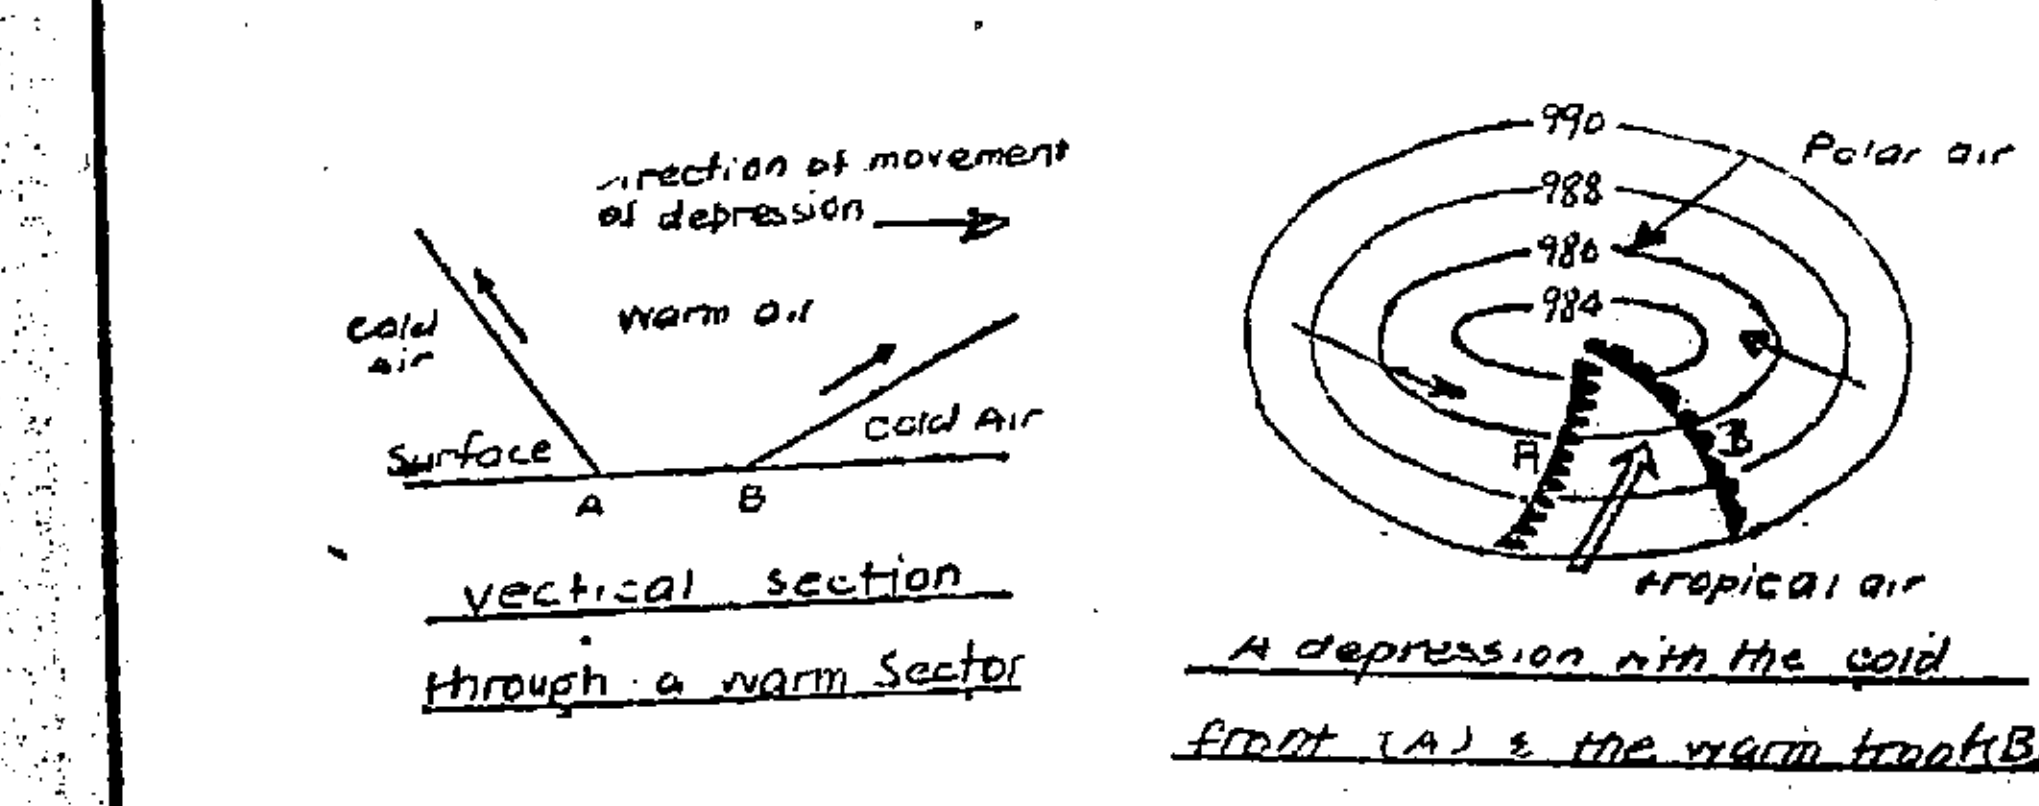 direction of movement
of depression
cold
air
warm air
cold Air
Surface
A
B
vectical section
through a warm Sector
990
988
986
984
Polar air
A
B
tropical air
A depression with the cold
front (A) & the warm front(B